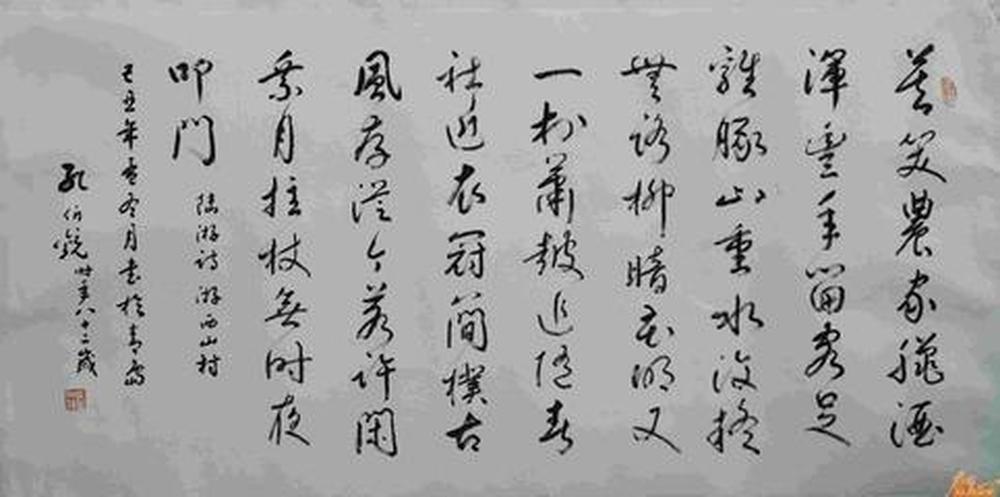 莫笑農家臘酒
渾豐年留客足
雞豚山重水復疑
無路柳暗花明又
一村蕭鼓追隨春
社近衣冠簡樸古
風存從今若許閑
乘月拄杖無時夜
叩門 陸游詩游西山村
己丑年冬月書於青島
孔伯 時年八十二歲